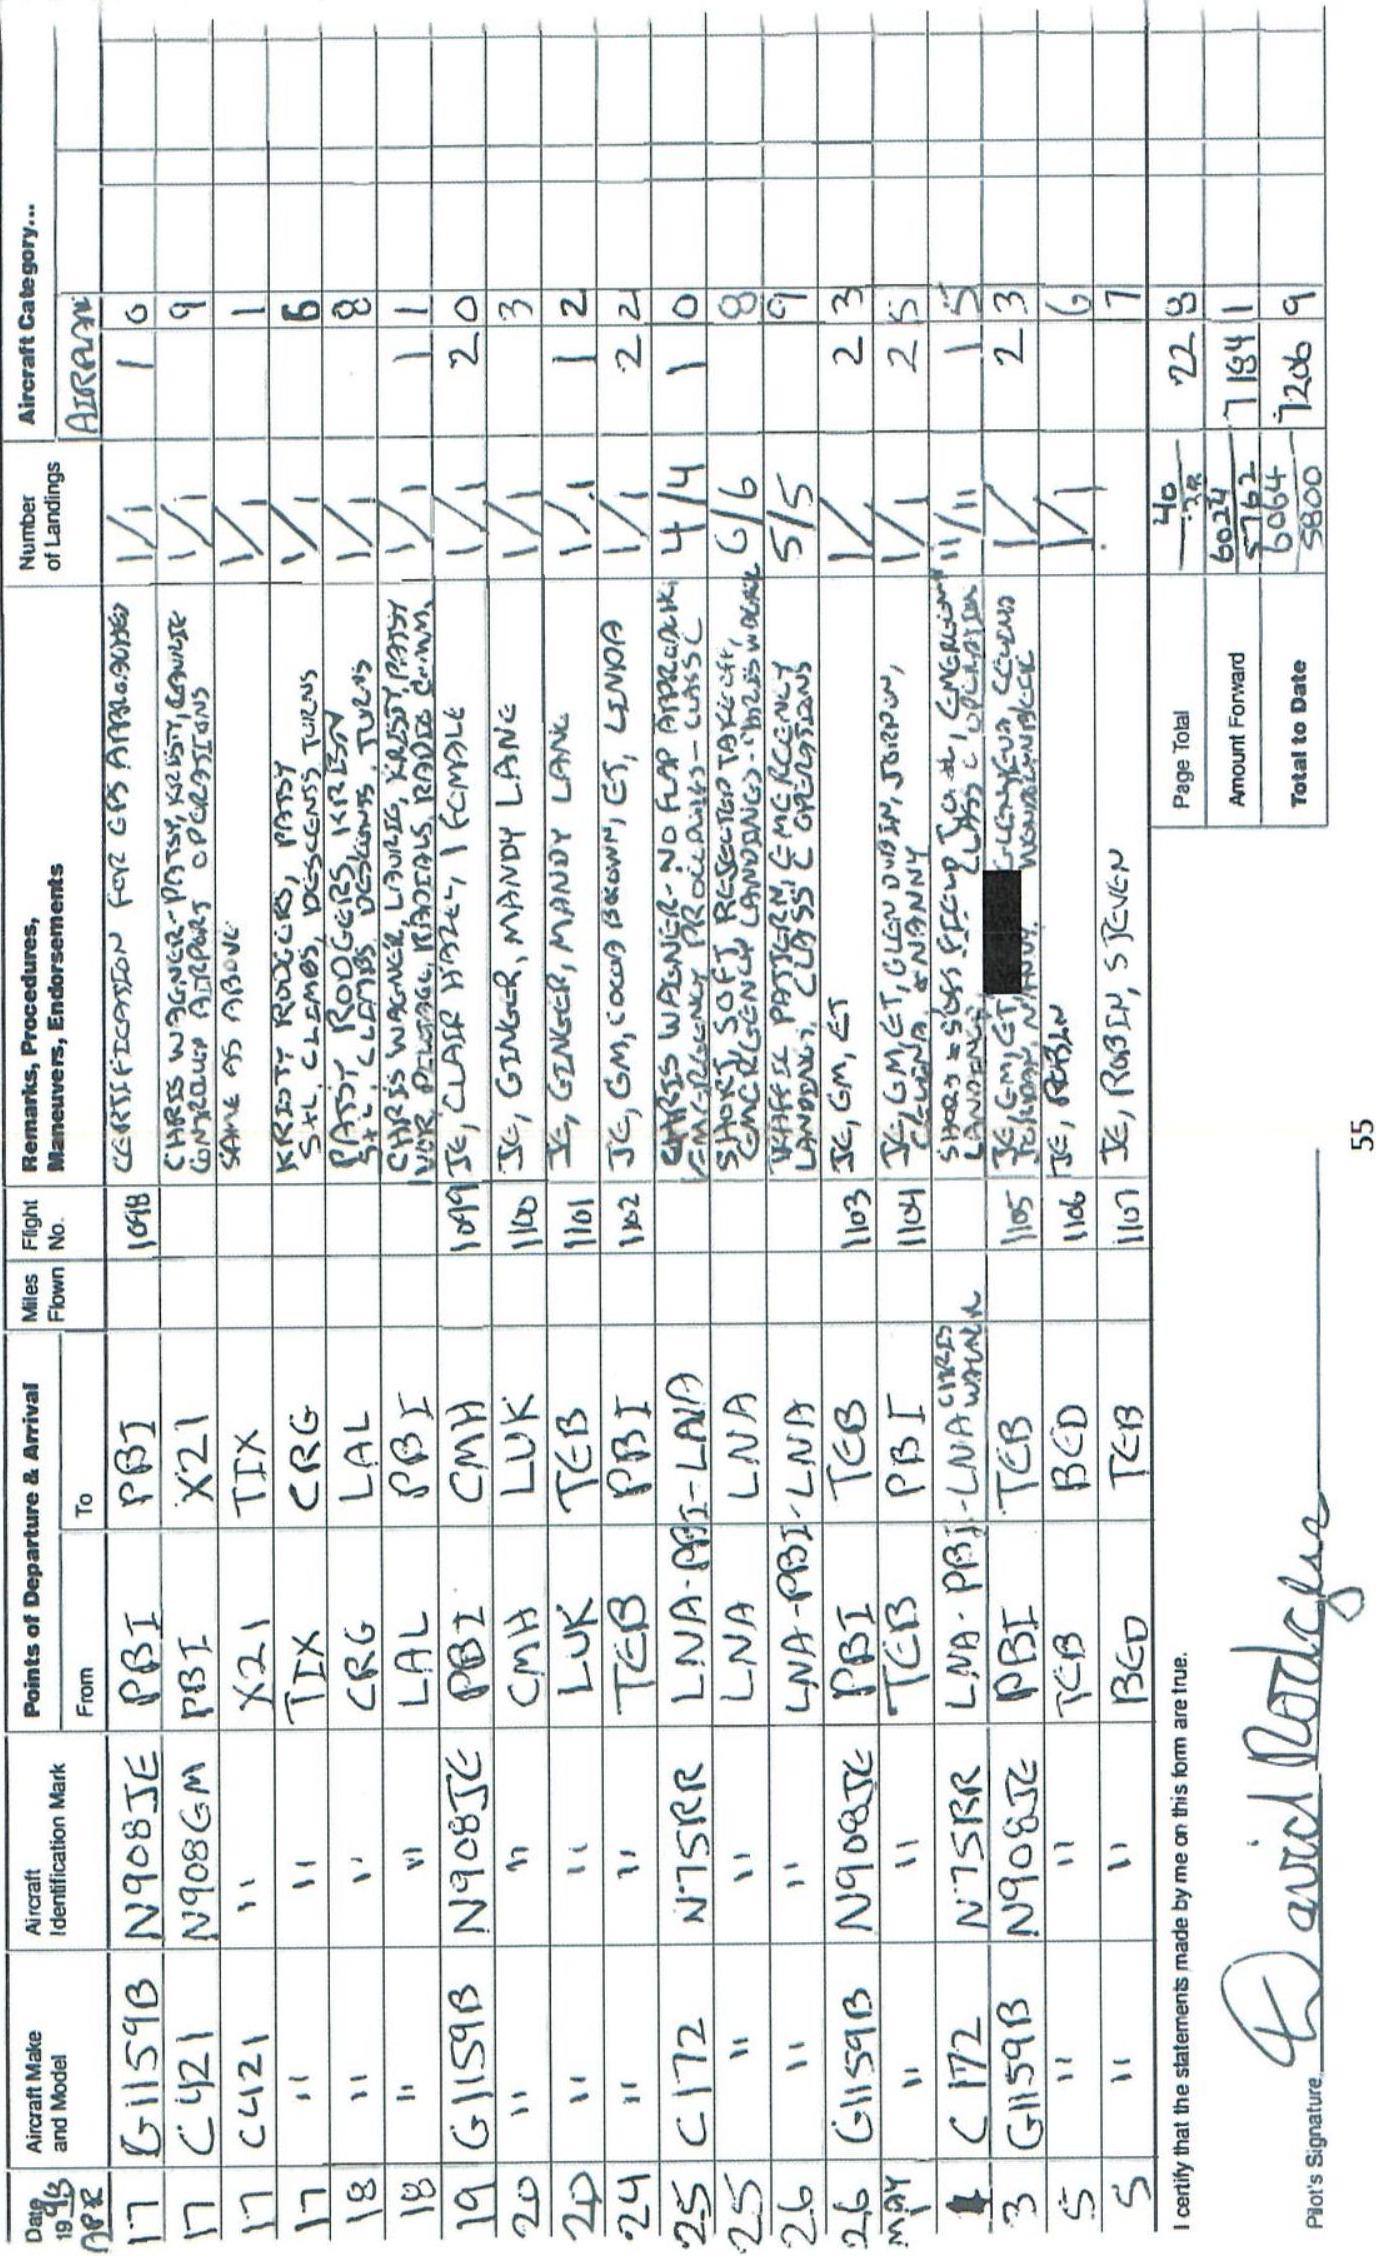 Date 19 96 Aircraft Make and Model Aircraft Identification Mark Points of Departure & Arrival Miles Flown Flight No. Remarks, Procedures, Maneuvers, Endorsements Number of Landings Aircraft Category...
APR From To AIRPLANE
17 G1159B N908JE PBI PBI 1098 CERTIFICATION FOR GPS APPROACHES 1/1 1 0
17 C421 N908GM PBI X21 CHRIS WAGNER - PATSY, KRISTY,
OPERATIONS 1/1 9
17 C421 " X21 TIX SAME AS ABOVE 1/1 1
17 " " TIX CRG KRISTY RODGERS, PATSY
S+L, CLIMBS, DESCENTS, TURNS 1/1 6
18 " " CRG LAL PATSY RODGERS, KRISTY
S+L, CLIMBS, DESCENTS, TURNS 1/1 8
18 " " LAL PBI CHRIS WAGNER, LAURIE, KRISTY, PATSY
VOR RADIALS, RADIO COMM. 1/1 1 1
19 G1159B N908JE PBI CMH 1099 JE, CLAIR HAZEL, 1 FEMALE 1/1 2 0
20 " " CMH LUK 1100 JE, GINGER, MANDY LANE 1/1 3
20 " " LUK TEB 1101 JE, GINGER, MANDY LANE 1/1 1 2
24 " " TEB PBI 1102 JE, GM, COCOA BROWN, ET, LINDA 1/1 2 2
25 C172 N75RR LNA-PBI-LNA CHRIS WAGNER - NO FLAP APPROACH
EMERGENCY PROCEDURES - CLASS C 4/4 1 0
25 " " LNA LNA SHORT, SOFT, REJECTED TAKEOFF,
EMERGENCY LANDINGS - CHRIS WAGNER 6/6 8
26 " " LNA-PBI-LNA TRAFFIC PATTERN, EMERGENCY
LANDINGS, CLASS C OPERATIONS 5/5 9
26 G1159B N908JE PBI TEB 1103 JE, GM, ET 1/ 2 3
MAY
1 " " TEB PBI 1104 JE, GM, ET, GLEN DUBIN, JORDON,
CELINA & NANNY 1/1 2 5
C172 N75RR LNA-PBI-LNA CHRIS WAGNER SHORT & SOFT FIELD
LANDINGS, CLASS C OPERATION 11/11 1 5
3 G1159B N908JE PBI TEB 1105 JE, GM, ET, GLENN, EVA, CELINA
JORDAN, NANNY, 1/ 2 3
5 " " TEB BED 1106 JE, ROBIN 1/1 6
5 " " BED TEB 1107 JE, ROBIN, STEVEN 7
I certify that the statements made by me on this form are true.
Page Total 40 38 22 8
Amount Forward 6024 5762 7184 1
Total to Date 6064 5800 7206 9
Pilot's Signature David Rodgers
55